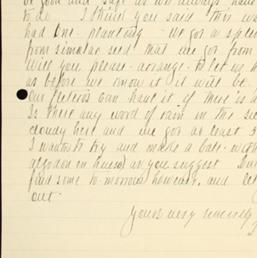 be you and safe as we always have
to do. I think you said this was
had one planting. We got a splen
from similar seed that we got from
Will you please arrange to let us h
as before we know it it will be
our fields can have it if there is a
Is there any word of rain in the sec
cloudy here and we got at least 3
I wanted to try and make a bale with
algodon en hueso as you suggest
find some to-morrow however, and let
out.
Yours very sincerely